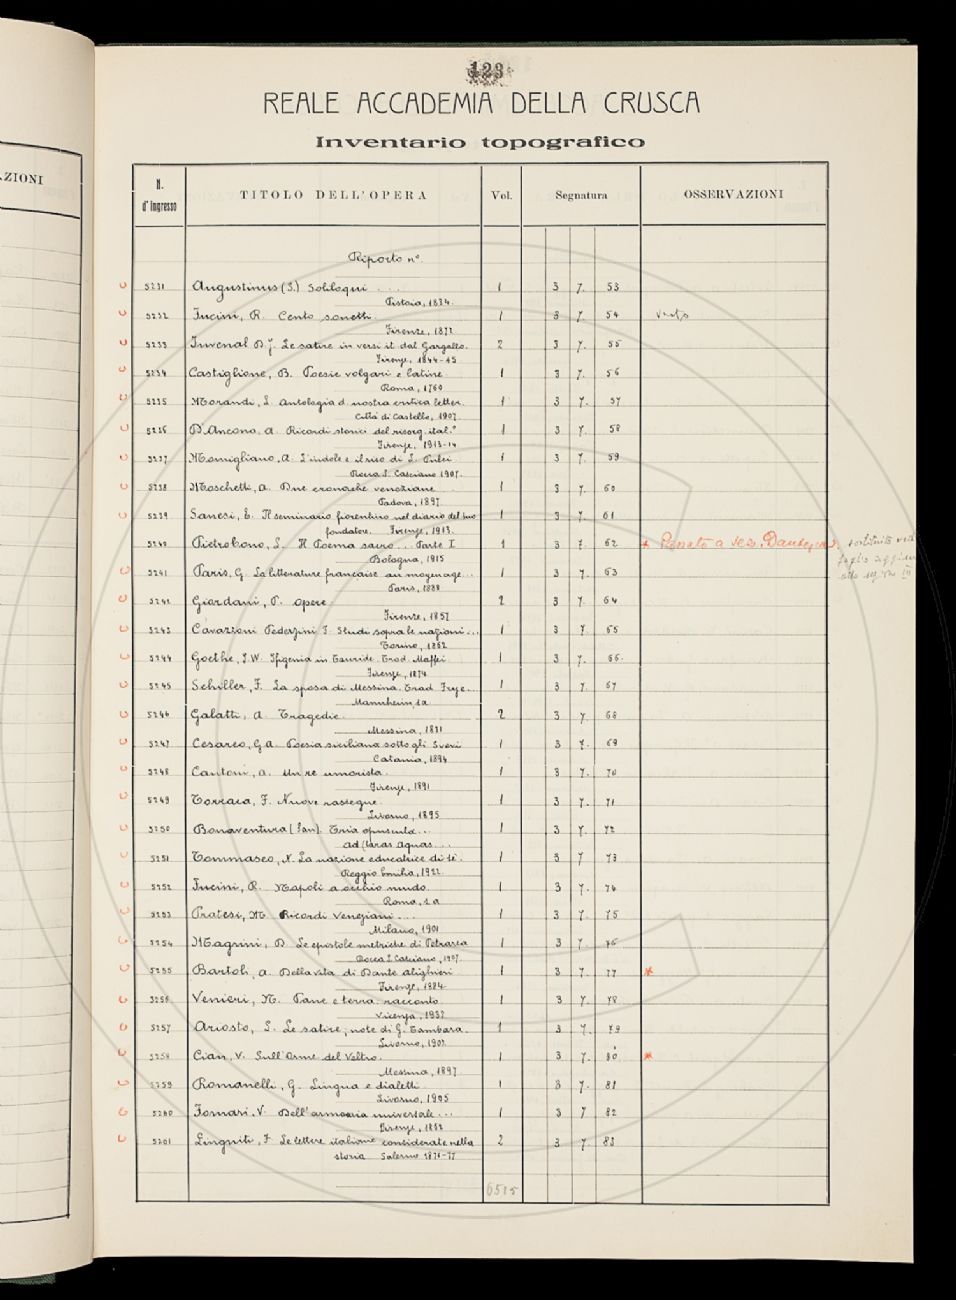 AZIONI
123
REALE ACCADEMIA DELLA CRUSCA
Inventario topografico
N. d'ingresso TITOLO DELL'OPERA Vol. Segnatura OSSERVAZIONI
Riporto n°
5231 Augustinus (S.) Soliloqui ... 1 3 7. 53
Pistoia, 1834.
5232 Fucini, R. Cento sonetti. 1 3 7. 54
Firenze, 1872
5233 Juvenal D. J. Le satire in versi it. dal Gargallo. 2 3 7. 55
Firenze, 1844-45
5234 Castiglione, B. Poesie volgari e latine. 1 3 7. 56
Roma, 1760
5235 Morandi, L. Antologia d. nostra critica letter. 1 3 7. 57
Città di Castello, 1907.
5236 D'Ancona, A. Ricordi storici del risorg. ital.° 1 3 7. 58
Firenze, 1913-14
5237 Momigliano, A. L'indole e il riso di L. Pulci 1 3 7. 59
Rocca S. Casciano 1907.
5238 Moschetti, A. Due cronache veneziane 1 3 7. 60
Padova, 1897
5239 Sanesi, E. Il seminario fiorentino nel diario del suo 1 3 7. 61
fondatore. Firenze, 1913.
5240 Pietrobono, L. Il Poema sacro... Parte I 1 3 7. 62
Bologna, 1915
5241 Paris, G. La litterature française au moyen age... 1 3 7. 63
Paris, 1888
5242 Giordani, P. Opere 2 3 7. 64
Firenze, 1857
5243 Cavazzoni Pederzini F. Studi sopra le nazioni... 1 3 7. 65
Torino, 1862
5244 Goethe, J.W. Ifigenia in Tauride. Trad. Maffei 1 3 7. 66.
Firenze, 1874
5245 Schiller, F. La sposa di Messina. Trad. ... 1 3 7. 67
Mannheim, s.a.
5246 Galatti, A. Tragedie. 2 3 7. 68
Messina, 1831
5247 Cesareo, G.A. Poesia siciliana sotto gli Svevi 1 3 7. 69
Catania, 1894
5248 Cantoni, A. Un re umorista. 1 3 7. 70
Firenze, 1891
5249 Torraca, F. Nuove rassegne. 1 3 7. 71
Livorno, 1895
5250 Bonaventura (San). Tria opuscula... 1 3 7. 72
ad Claras Aquas...
5251 Tommaseo, N. La nazione educatrice di sè. 1 3 7 73
Reggio Emilia, 1922
5252 Fucini, R. Napoli a occhio nudo. 1 3 7. 74
Roma, s.a
5253 Pratesi, M. Ricordi Veneziani... 1 3 7. 75
Milano, 1901
5254 Magrini, D. Le epistole metriche di Petrarca 1 3 7. 76
Rocca S. Casciano, 1907.
5255 Bartoli, A. Della vita di Dante Alighieri 1 3 7. 77 *
Firenze, 1884
5256 Venieri, M. Pane e terra. racconto 1 3 7. 78
Vicenza, 1937
5257 Ariosto, L. Le satire, note di G. Tambara. 1 3 7. 79
Livorno, 1903
5258 Cian, V. Sull'Orme del Veltro. 1 3 7. 80 *
Messina, 1897
5259 Romanelli, G. Lingua e dialetti 1 3 7. 81
Livorno, 1905
5260 Fornari, V. Dell'armonia universale... 1 3 7 82
Firenze, 1862
5261 Linguiti, F. Le lettere italiane considerate nella 2 3 7 83
storia Salerno 1876-77
6515